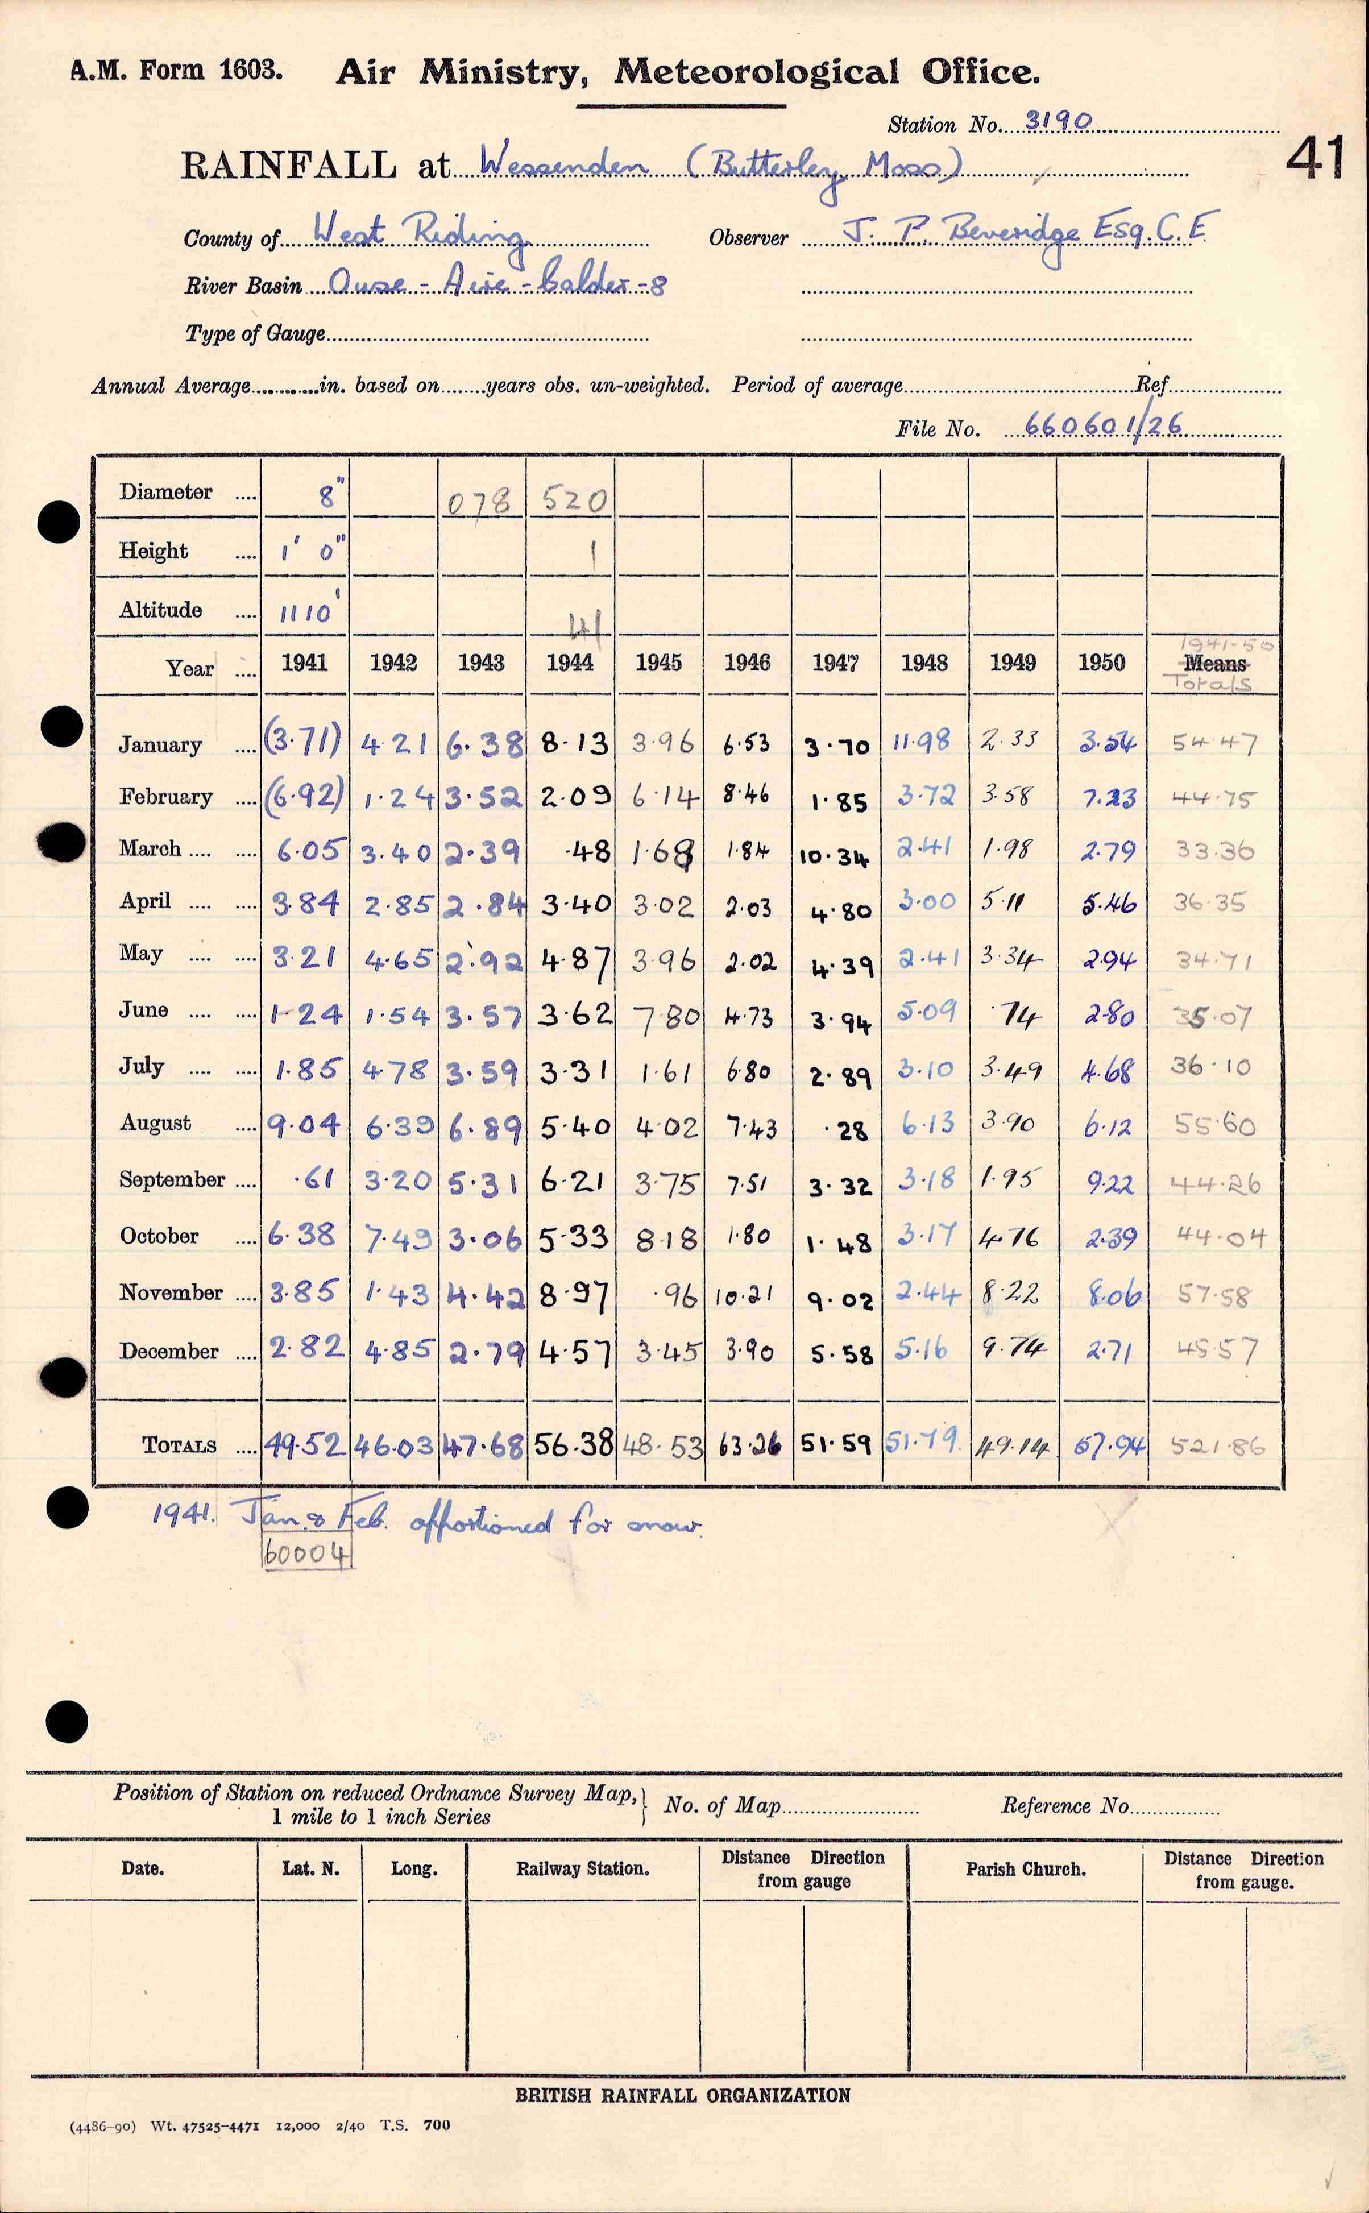 A.M. Form 1603. Air Ministry, Meteorological Office.
Station No. 3190
41
RAINFALL at Wessenden (Butterley Moss)
County of West Riding Observer J. P. Beveridge Esq. C.E
River Basin Ouse - Aire - Calder - 8
Type of Gauge
Annual Average in. based on years obs. un-weighted. Period of average Ref
File No. 660601/26
Diameter .... 8" 078 520
Height .... 1' 0" 1
Altitude .... 1110' 41
1941-50
Year .... 1941 1942 1943 1944 1945 1946 1947 1948 1949 1950 Means
Totals
January .... (3.71) 4.21 6.38 8.13 3.96 6.53 3.70 11.98 2.33 3.54 54.47
February .... (6.92) 1.24 3.52 2.09 6.14 8.46 1.85 3.72 3.58 7.23 44.75
March .... .... 6.05 3.40 2.39 .48 1.68 1.84 10.34 2.41 1.98 2.79 33.36
April .... .... 3.84 2.85 2.84 3.40 3.02 2.03 4.80 3.00 5.11 5.46 36.35
May .... .... 3.21 4.65 2.92 4.87 3.96 2.02 4.39 2.41 3.34 2.94 34.71
June .... .... 1.24 1.54 3.57 3.62 7.80 4.73 3.94 5.09 .74 2.80 35.07
July .... .... 1.85 4.78 3.59 3.31 1.61 6.80 2.89 3.10 3.49 4.68 36.10
August .... 9.04 6.39 6.89 5.40 4.02 7.43 .28 6.13 3.90 6.12 55.60
September .... .61 3.20 5.31 6.21 3.75 7.51 3.32 3.18 1.95 9.22 44.26
October .... 6.38 7.49 3.06 5.33 8.18 1.80 1.48 3.17 4.76 2.39 44.04
November .... 3.85 1.43 4.42 8.97 .96 10.21 9.02 2.44 8.22 8.06 57.58
December .... 2.82 4.85 2.79 4.57 3.45 3.90 5.58 5.16 9.74 2.71 45.57
TOTALS .... 49.52 46.03 47.68 56.38 48.53 63.26 51.59 51.79 49.14 57.94 521.86
1941. Jan. & Feb. apportioned for snow.
60004
Position of Station on reduced Ordnance Survey Map, } No. of Map Reference No.
1 mile to 1 inch Series
Date. Lat. N. Long. Railway Station. Distance Direction from gauge Parish Church. Distance Direction from gauge.
BRITISH RAINFALL ORGANIZATION
(4486-90) Wt. 47525-4471 12,000 2/40 T.S. 700